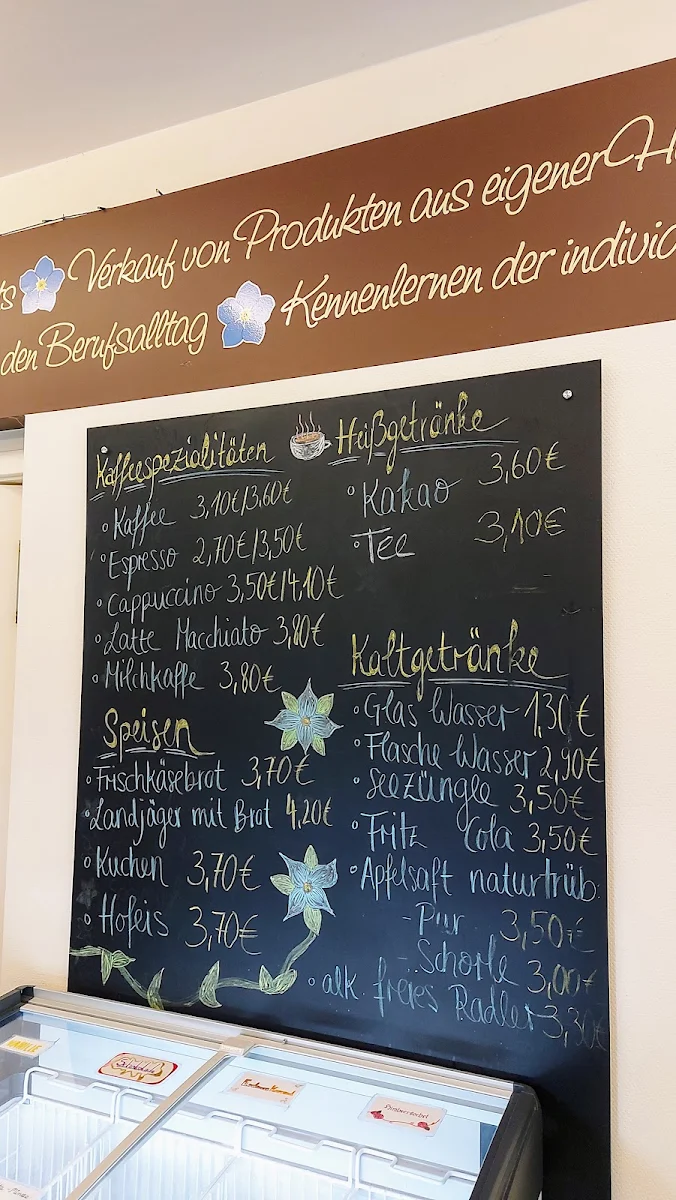 Verkauf von Produkten aus eigener
den Berufsalltag Kennenlernen der
Kaffeespezialitäten
Kaffee 3,10€/3,60€
Espresso 2,70€/3,50€
Cappuccino 3,50€/4,10€
Latte Macchiato 3,80€
Milchkaffe 3,80€
Speisen
Frischkäsebrot 3,70€
Landjäger mit Brot 4,20€
Kuchen 3,70€
Hofeis 3,70€
Heißgetränke
Kakao 3,60€
Tee 3,10€
Kaltgetränke
Glas Wasser 1,30€
Flasche Wasser 2,90€
Seezüngle 3,50€
Fritz Cola 3,50€
Apfelsaft naturtrüb
- Pur 3,50€
- Schorle 3,00€
alk. freies Radler 3,30€